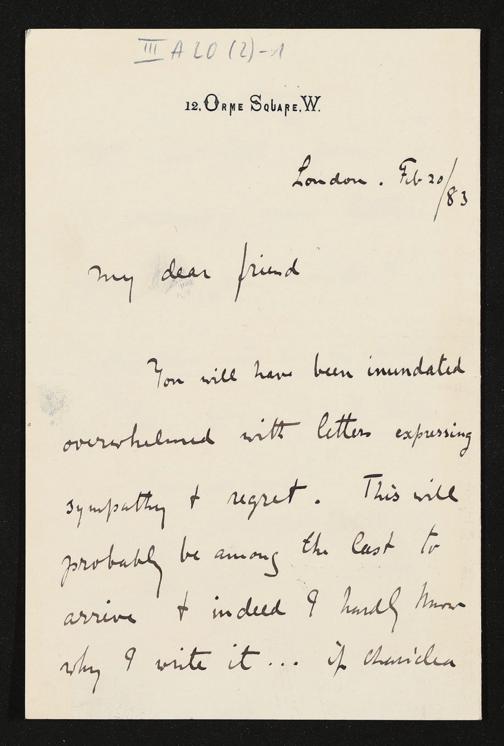 III A 20 (2)-1
12, Orme Square, W.
London. Feb 20/83
My dear friend
You will have been inundated
overwhelmed with letters expressing
sympathy & regret. This will
probably be among the last to
arrive & indeed I hardly know
why I write it... if Chariclea